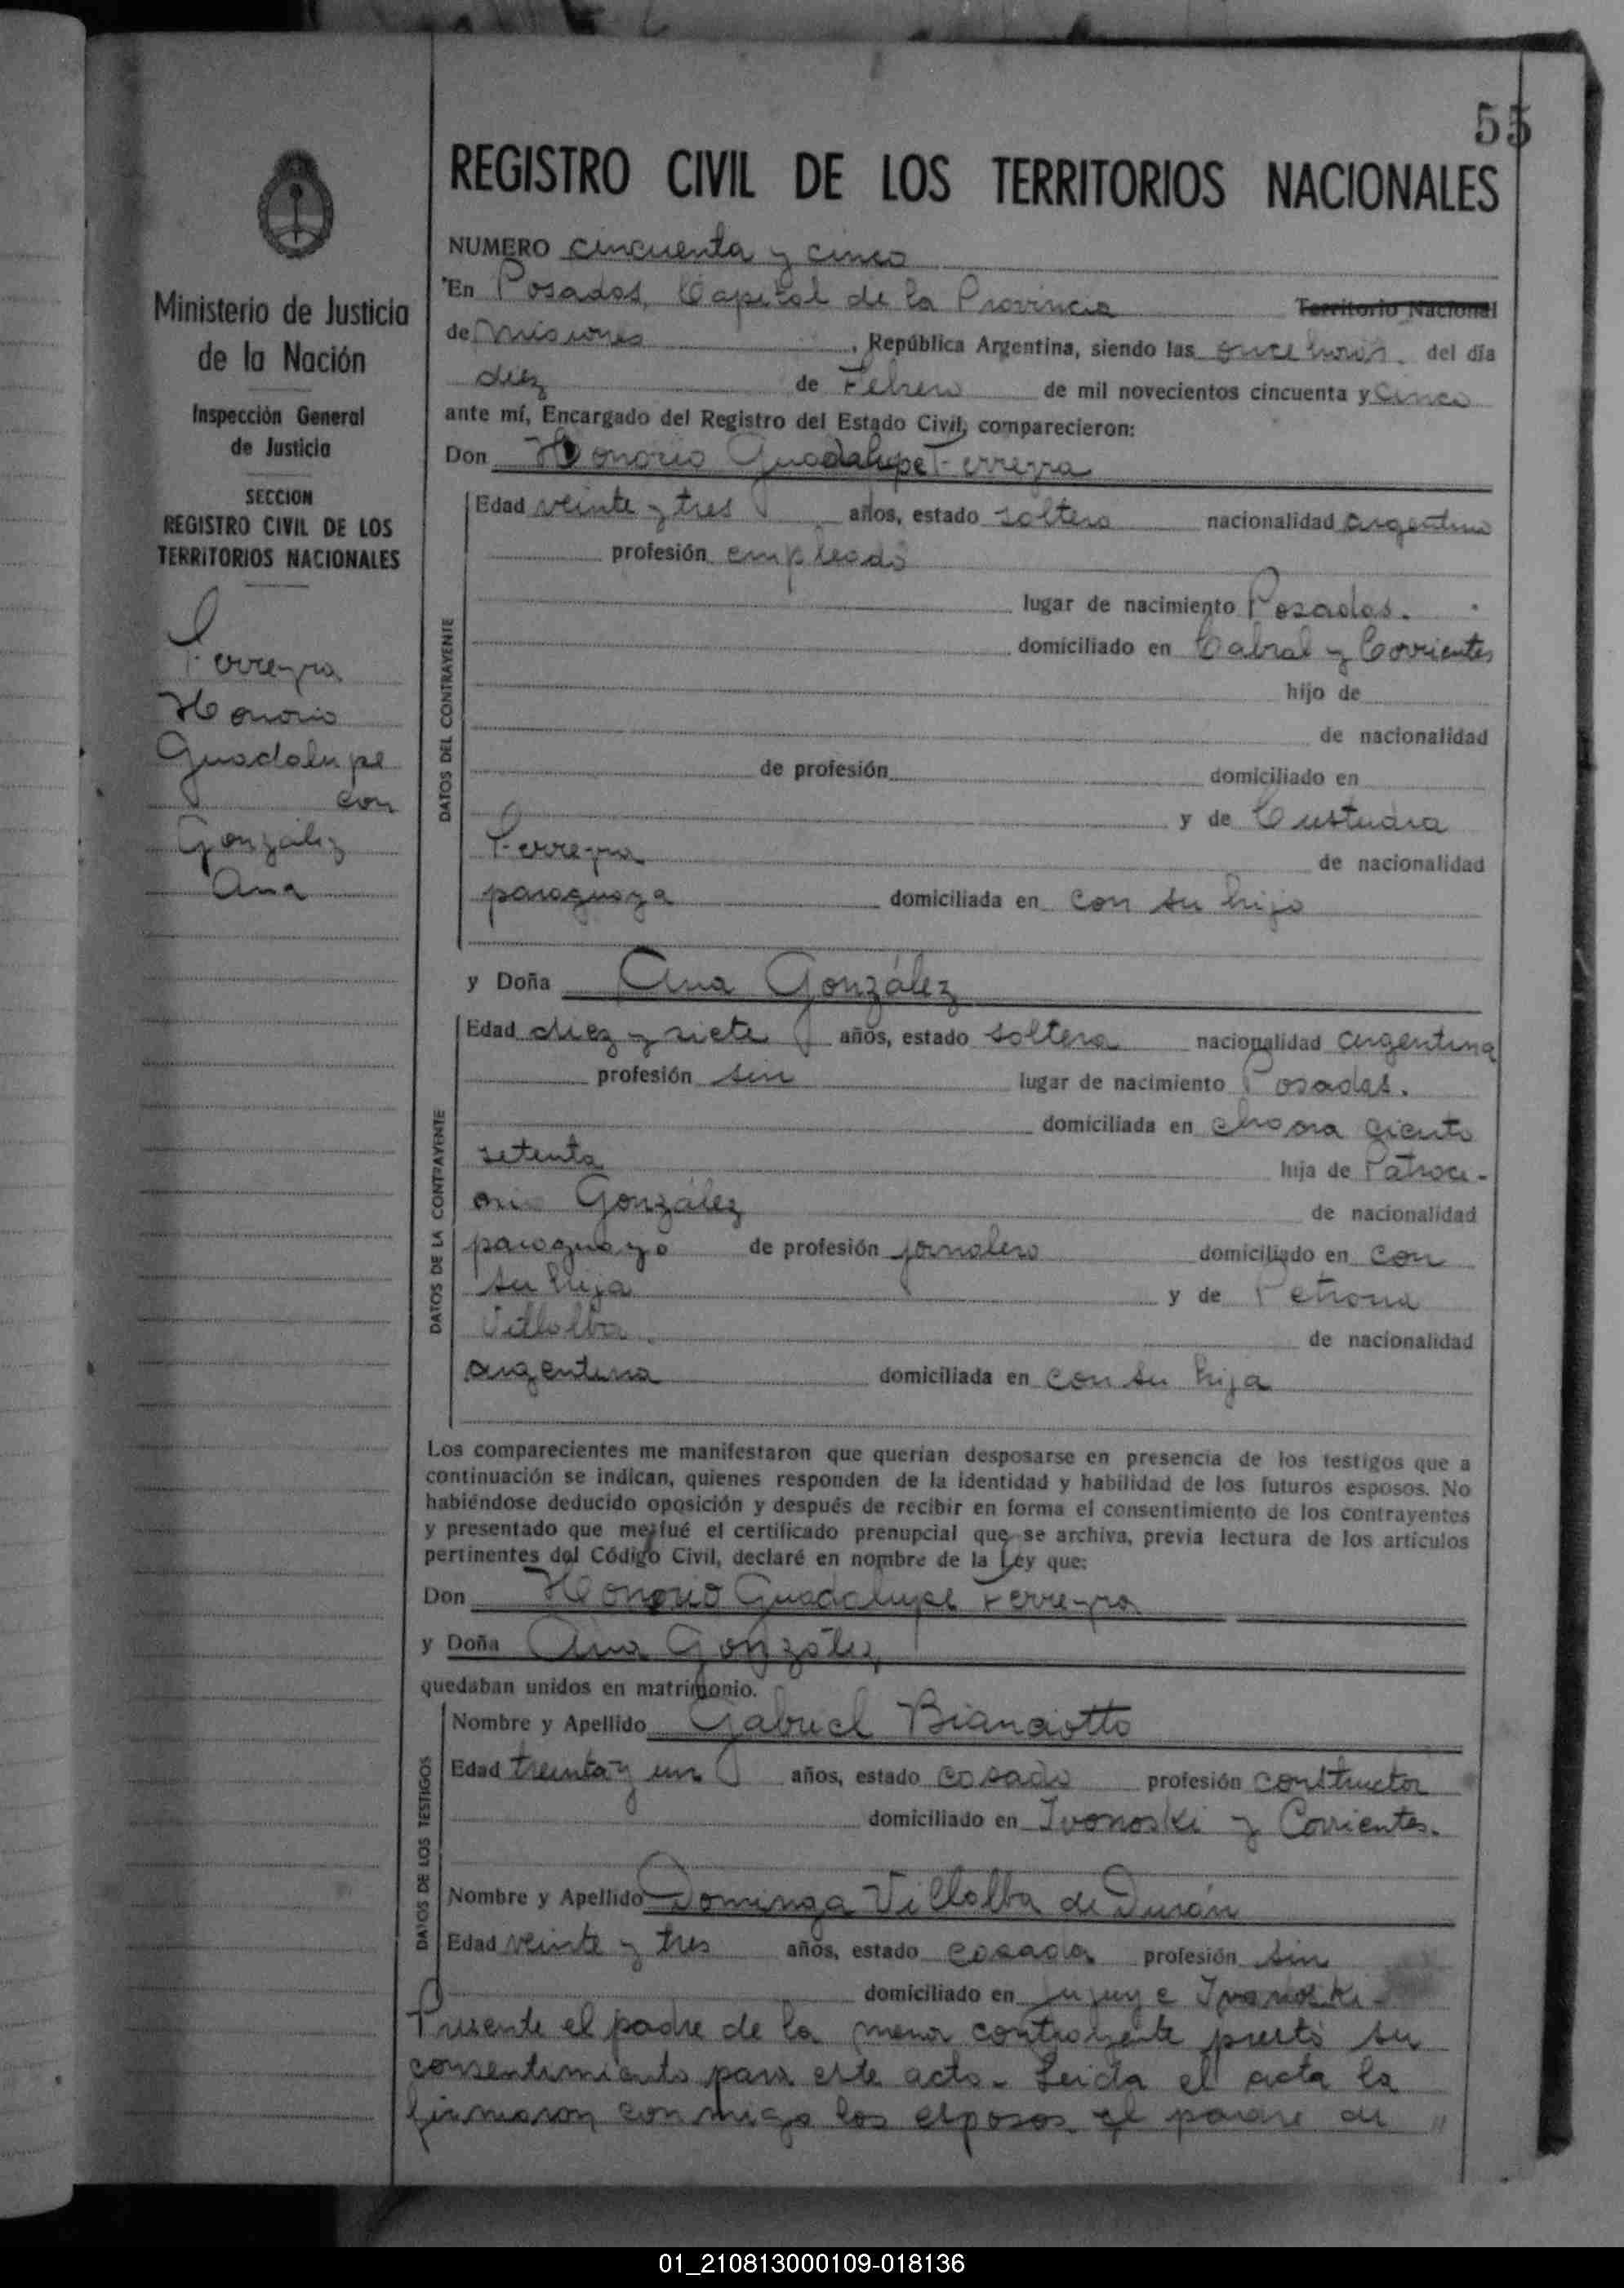 55
REGISTRO CIVIL DE LOS TERRITORIOS NACIONALES
Ministerio de Justicia
de la Nación
Inspección General
de Justicia
SECCION
REGISTRO CIVIL DE LOS
TERRITORIOS NACIONALES
Ferreyra
Honorio
Guadalupe
con
González
Ana
NUMERO cincuenta y cinco
En Posadas, Capital de la Provincia Territorio Nacional
de Misiones, República Argentina, siendo las once horas del día
diez de Febrero de mil novecientos cincuenta y cinco
ante mí, Encargado del Registro del Estado Civil, comparecieron:
Don Honorio Guadalupe Ferreyra
DATOS DEL CONTRAYENTE
Edad veinte y tres años, estado soltero nacionalidad argentino
profesión empleado
lugar de nacimiento Posadas.
domiciliado en Cabral y Corrientes
hijo de
de nacionalidad
de profesión domiciliado en
y de Custudia
Ferreyra de nacionalidad
paraguaya domiciliada en con su hijo
y Doña Ana González
DATOS DE LA CONTRAYENTE
Edad diez y siete años, estado soltera nacionalidad argentina
profesión sin lugar de nacimiento Posadas.
domiciliada en chacra ciento
setenta hija de Patroci-
nio González de nacionalidad
paraguayo de profesión jornalero domiciliado en con
su hija y de Petrona
Villalba. de nacionalidad
argentina domiciliada en con su hija
Los comparecientes me manifestaron que querían desposarse en presencia de los testigos que a
continuación se indican, quienes responden de la identidad y habilidad de los futuros esposos. No
habiéndose deducido oposición y después de recibir en forma el consentimiento de los contrayentes
y presentado que me fué el certificado prenupcial que se archiva, previa lectura de los artículos
pertinentes del Código Civil, declaré en nombre de la Ley que:
Don Honorio Guadalupe Ferreyra
y Doña Ana González
quedaban unidos en matrimonio.
DATOS DE LOS TESTIGOS
Nombre y Apellido Gabriel Bianciotto
Edad treinta y un años, estado casado profesión constructor
domiciliado en Ivonoski y Corrientes.
Nombre y Apellido Dominga Villalba de Durán
Edad veinte y tres años, estado casada profesión sin
domiciliado en Jujuy e Ivanoski.
Presente el padre de la menor contrayente prestó su
consentimiento para este acto. Leida el acta la
firmaron conmigo los esposos el padre de "
01_210813000109-018136